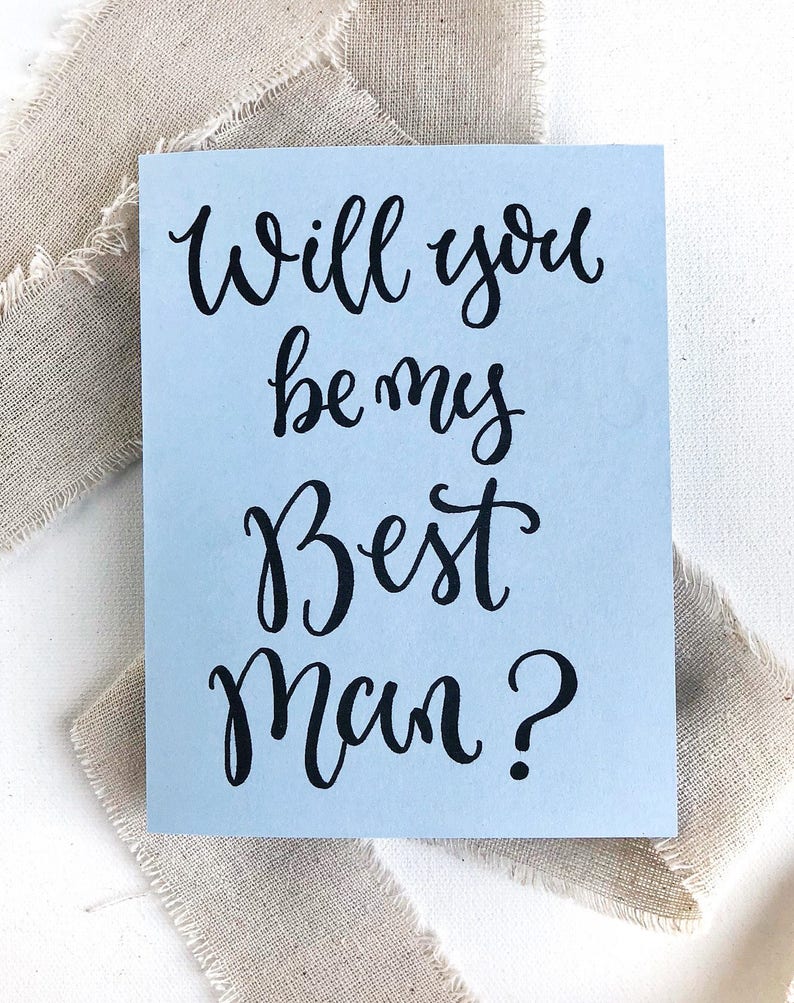 Will you
be my
Best
Man?